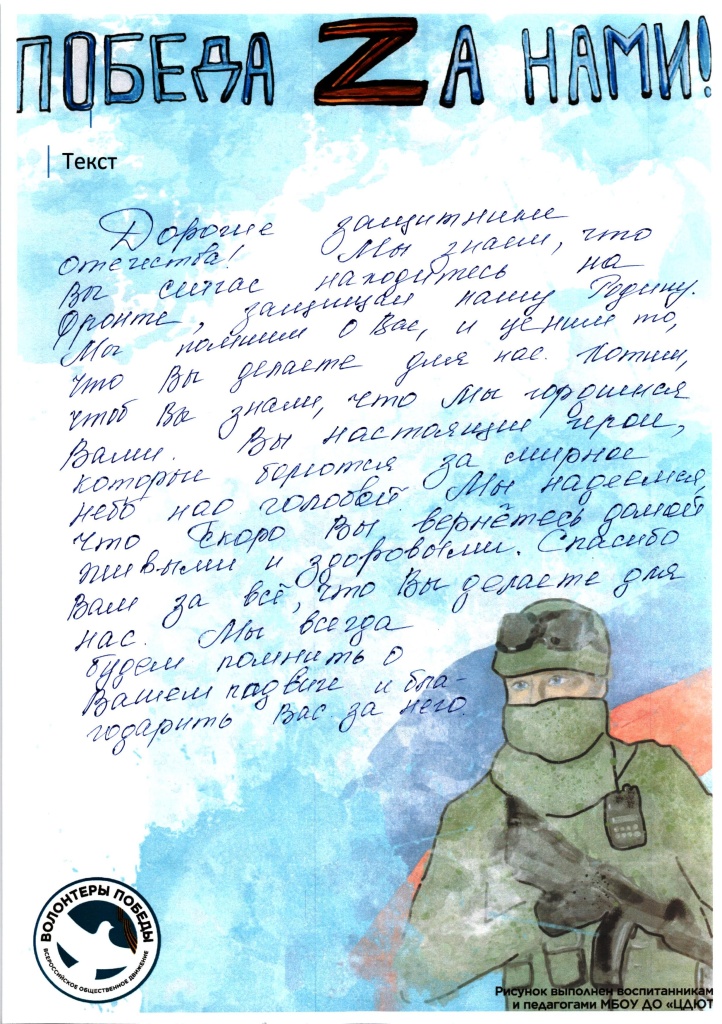 ПОБЕДА ZА НАМИ!
Текст
Дорогие защитники
отечества! Мы знаем, что
Вы сейчас находитесь на
Фронте, защищая нашу Родину.
Мы помним о Вас, и ценим то,
что Вы делаете для нас. Хотим,
чтоб Вы знали, что Мы гордимся
Вами. Вы настоящие герои,
которые борются за мирное
небо над головой. Мы надеемся,
что скоро Вы вернётесь домой
живыми и здоровыми. Спасибо
Вам за всё, что Вы делаете для
нас. Мы всегда
будем помнить о
Вашем подвиге и бла-
годарить Вас за него.
ВОЛОНТЕРЫ ПОБЕДЫ
ВСЕРОССИЙСКОЕ ОБЩЕСТВЕННОЕ ДВИЖЕНИЕ
Рисунок выполнен воспитанникам
и педагогами МБОУ ДО «ЦДЮТ